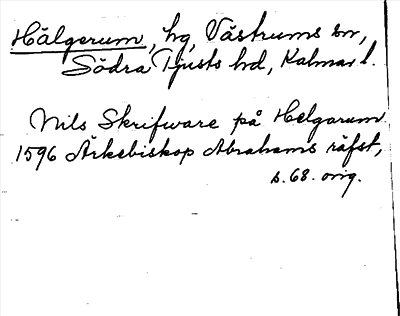 Hälgerum, hg, Västrums sn,
Södra Tjusts hd, Kalmar l.
Nils Skrifware på Helgarum
1596 Ärkebiskop Abrahams räfst,
s. 68. orig.